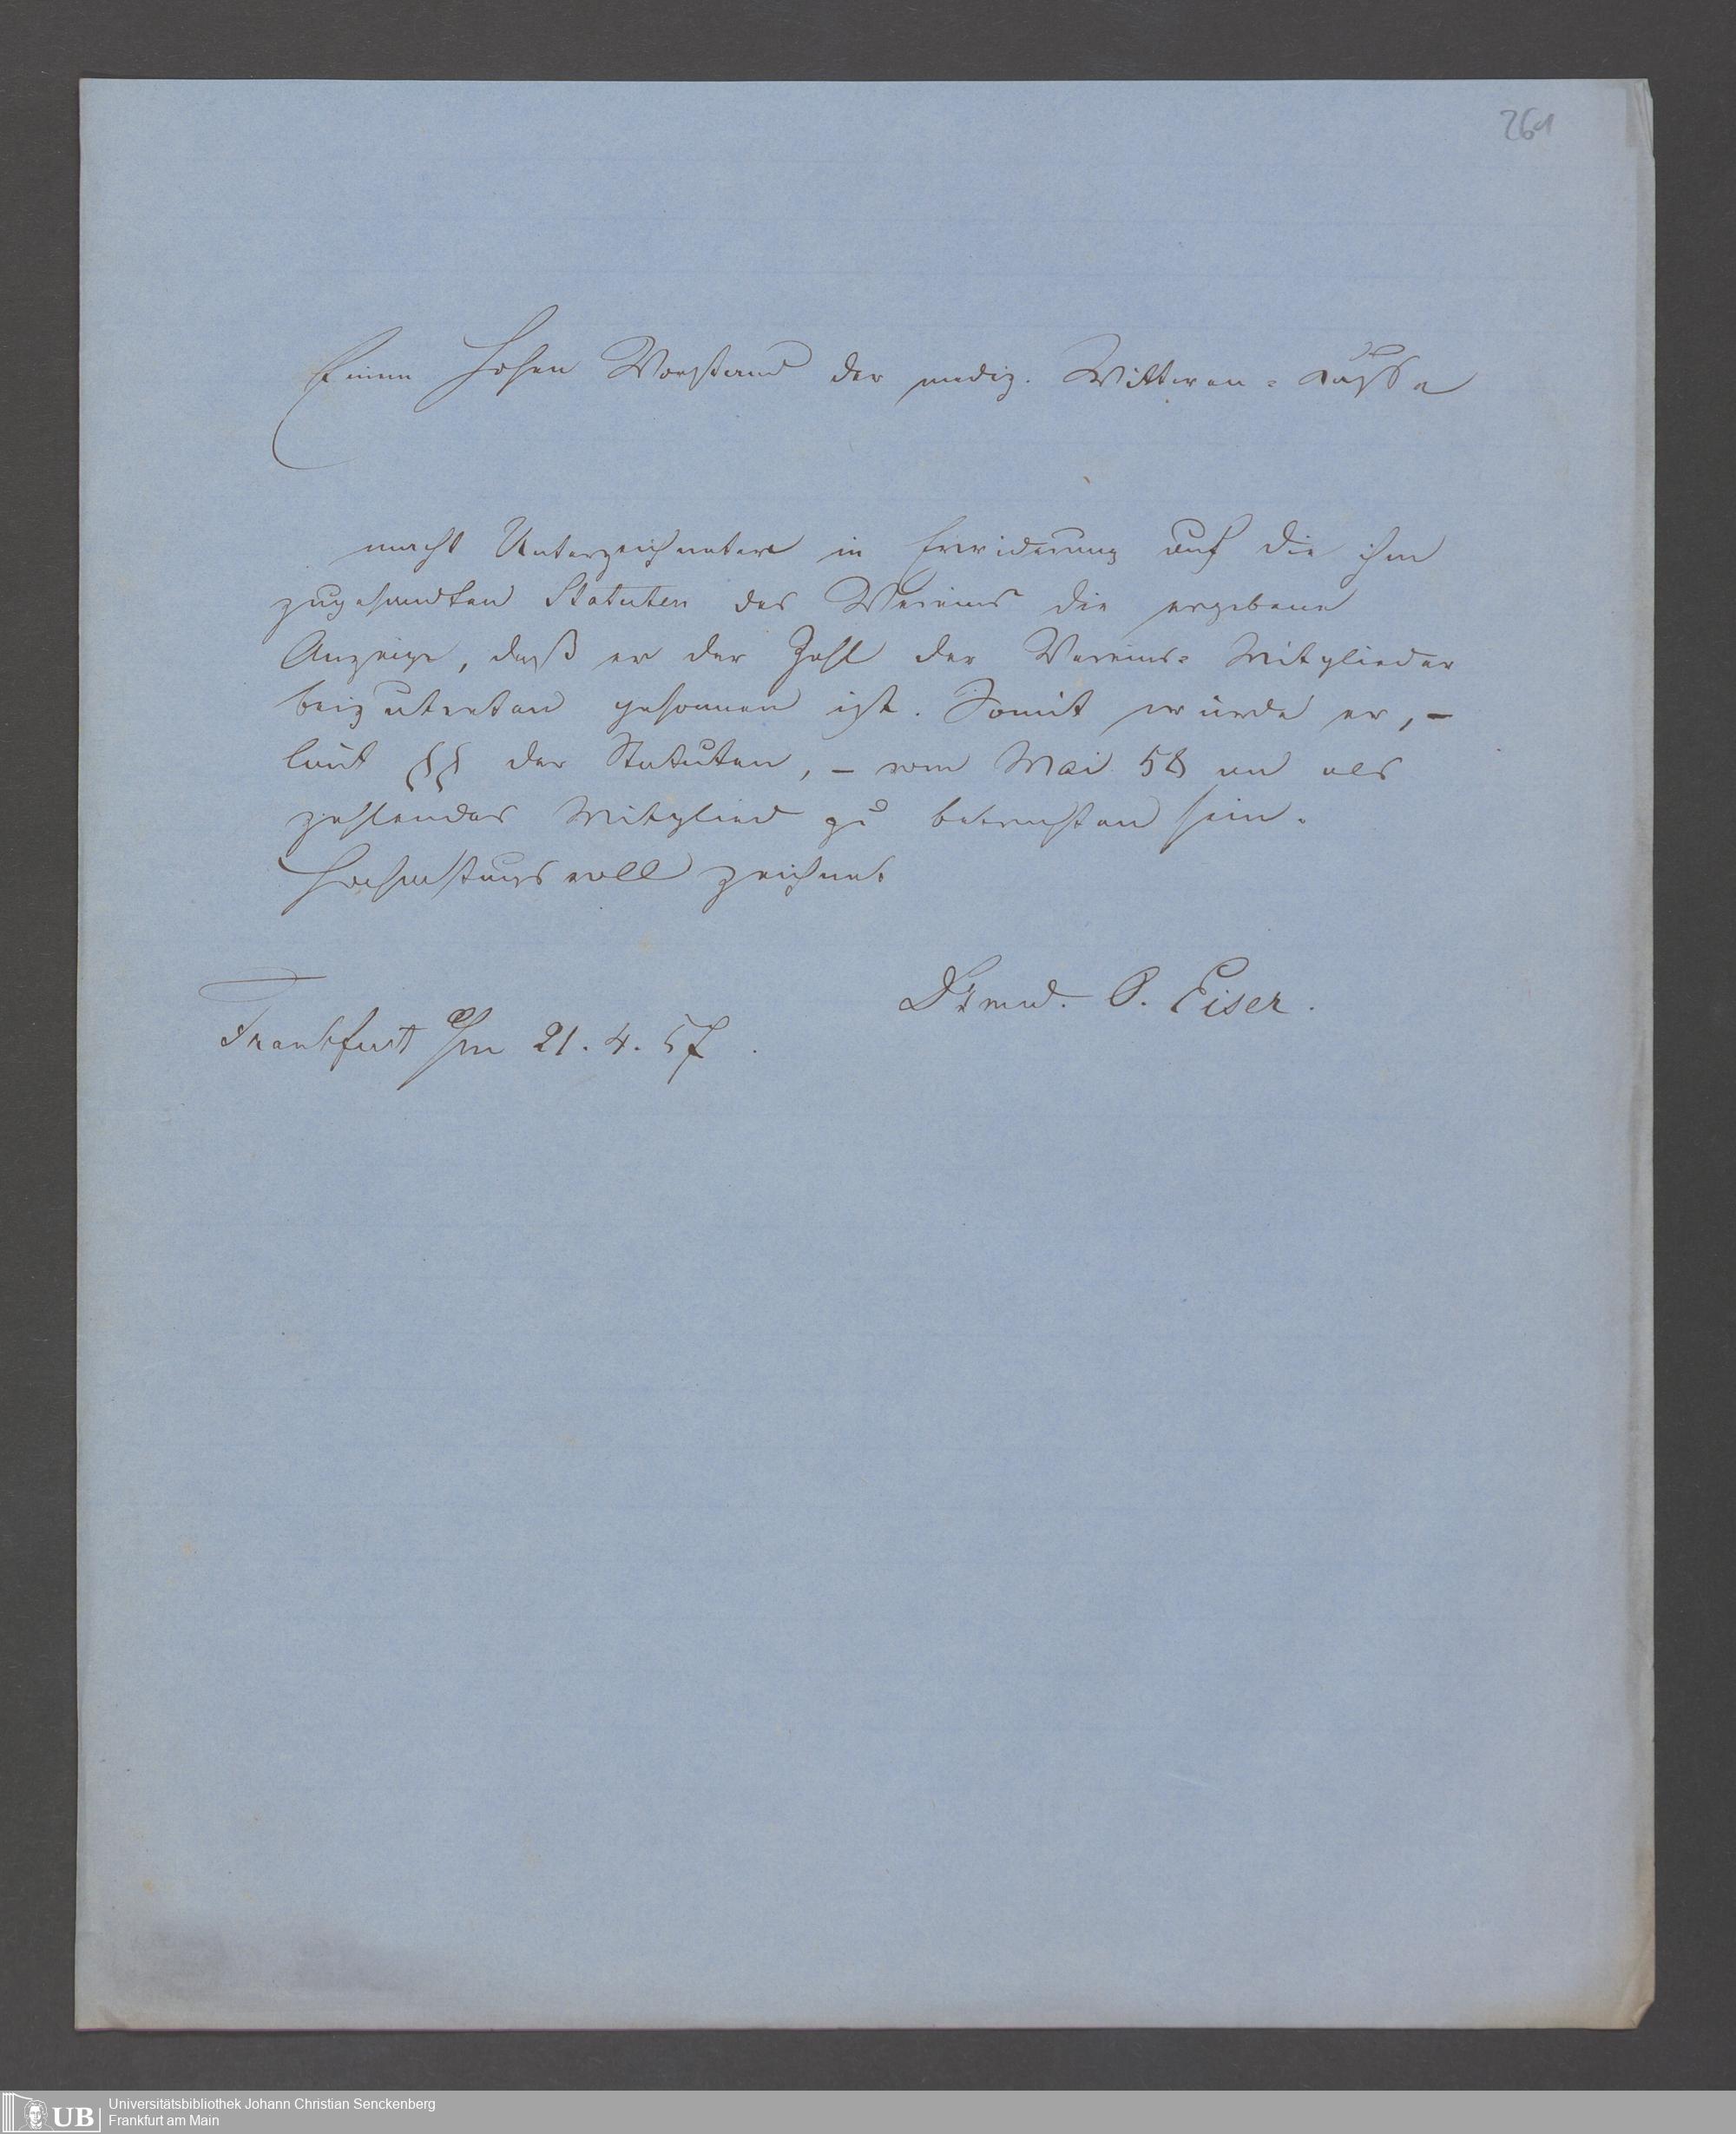 261
Einem hohen Vorstand der mediz. Wittwen-Kasse
macht Unterzeichneter in Erwiderung auf die ihm
zugesandten Statuten des Vereins die ergebene
Anzeige, daß er der Zahl der Vereins-Mitglieder
beizutreten gesonnen ist. Somit würde er, –
laut §§ der Statuten, – vom Mai 58 an als
zahlendes Mitglied zu betrachten sein.
Hochachtungsvoll zeichnet
Dr med. O. Eiser.
Frankfurt a/m 21. 4. 57.
UB
Universitätsbibliothek Johann Christian Senckenberg
Frankfurt am Main